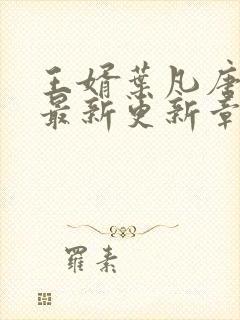 王婿葉凡唐
最新更新章
羅素